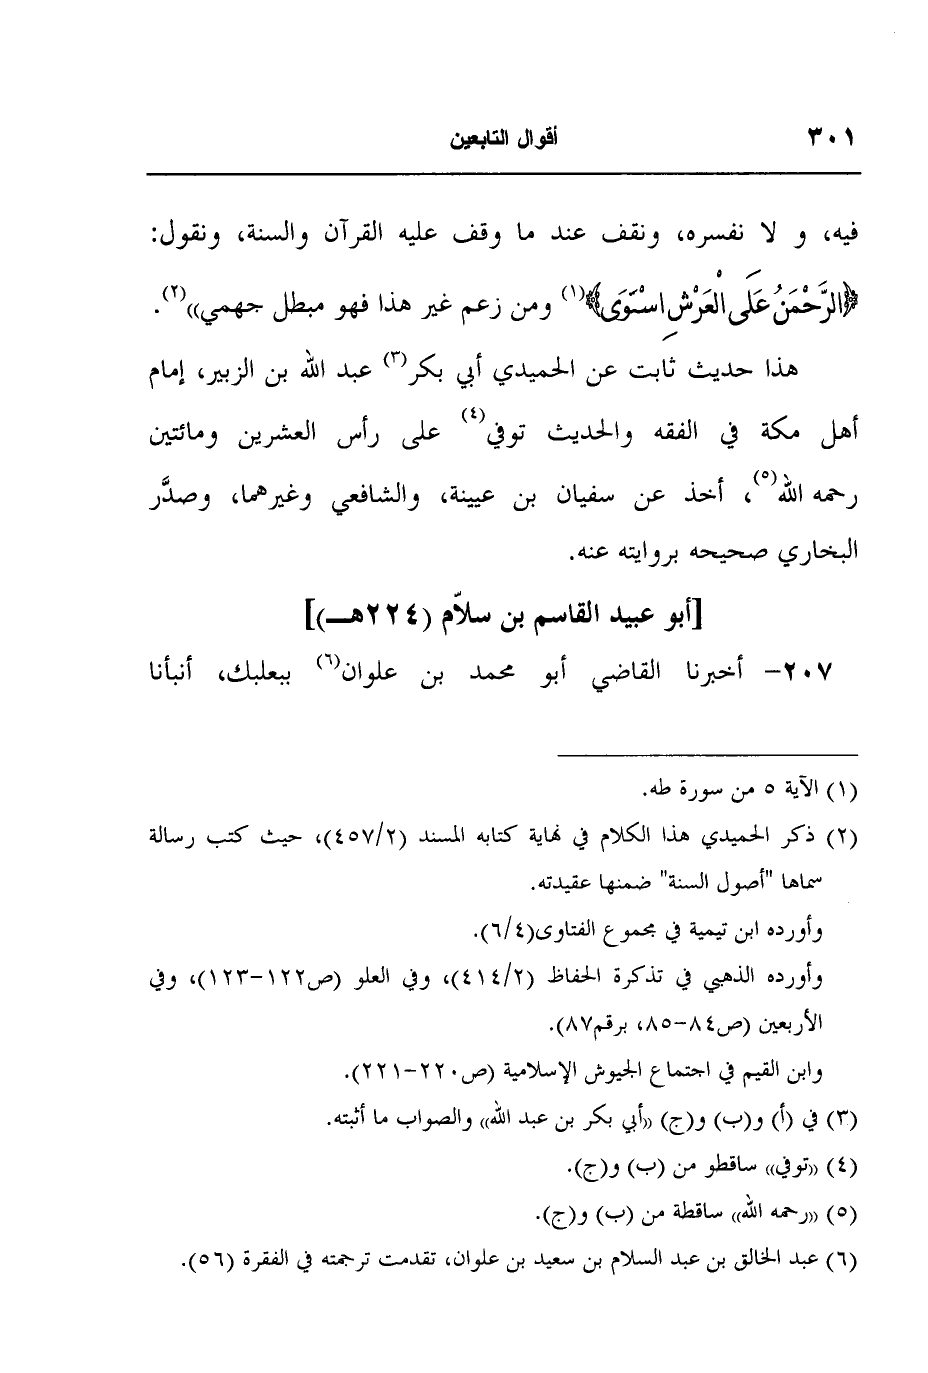 ٣٠١ أقوال التابعين
فيه، و لا نفسره، ونقف عند ما وقف عليه القرآن والسنة، ونقول:
﴿الرَّحْمَنُ عَلَى الْعَرْشِ اسْتَوَى﴾(١) ومن زعم غير هذا فهو مبطل جهمي»(٢).
هذا حديث ثابت عن الحميدي أبي بكر(٣) عبد الله بن الزبير، إمام
أهل مكة في الفقه والحديث توفي(٤) على رأس العشرين ومائتين
رحمه الله(٥)، أخذ عن سفيان بن عيينة، والشافعي وغيرهما، وصدَّر
البخاري صحيحه بروايته عنه.
[أبو عبيد القاسم بن سلاّم (٢٢٤هـ)]
٢٠٧- أخبرنا القاضي أبو محمد بن علوان(٦) ببعلبك، أنبأنا
(١) الآية ٥ من سورة طه.
(٢) ذكر الحميدي هذا الكلام في نهاية كتابه المسند (٤٥٧/٢)، حيث كتب رسالة
سماها "أصول السنة" ضمنها عقيدته.
وأورده ابن تيمية في مجموع الفتاوى(٦/٤).
وأورده الذهبي في تذكرة الحفاظ (٤١٤/٢)، وفي العلو (ص١٢٢-١٢٣)، وفي
الأربعين (ص٨٤-٨٥، برقم٨٧).
وابن القيم في اجتماع الجيوش الإسلامية (ص٢٢٠-٢٢١).
(٣) في (أ) و(ب) و(ج) «أبي بكر بن عبد الله» والصواب ما أثبته.
(٤) «توفي» ساقطو من (ب) و(ج).
(٥) «رحمه الله» ساقطة من (ب) و(ج).
(٦) عبد الخالق بن عبد السلام بن سعيد بن علوان، تقدمت ترجمته في الفقرة (٥٦).